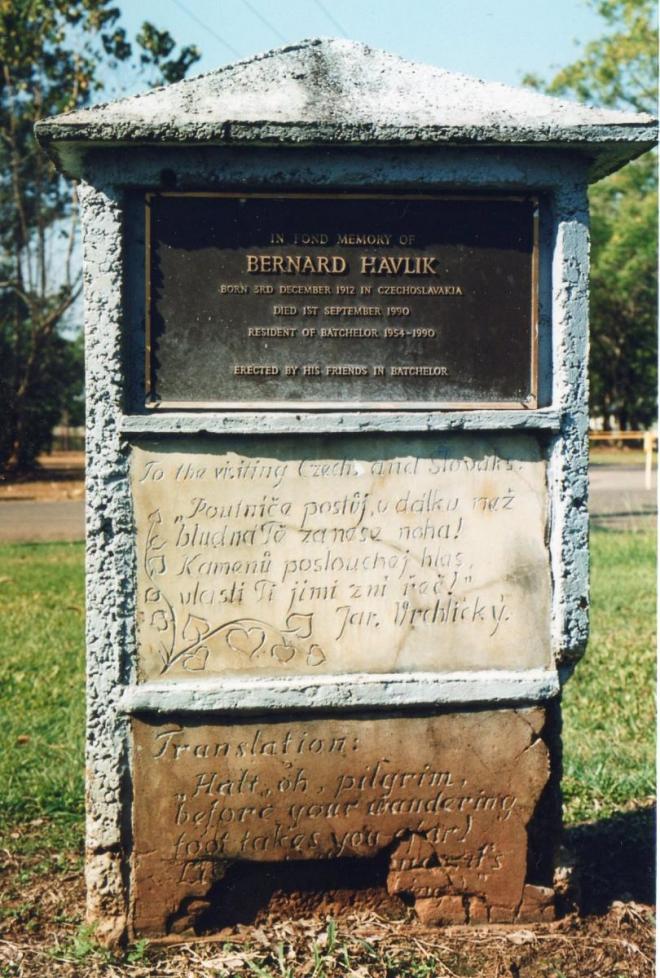 IN FOND MEMORY OF
BERNARD HAVLIK
BORN 3RD DECEMBER 1912 IN CZECHOSLAVAKIA
DIED 1ST SEPTEMBER 1990
RESIDENT OF BATCHELOR 1954-1990
ERECTED BY HIS FRIENDS IN BATCHELOR
To the visiting Czechs and Slovaks:
„Poutníče postůj, v dálku než
bludná Tě zanese noha!
Kamenů poslouchej hlas,
vlasti Ti jimi zní řeč!"
Jar. Vrchlický.
Translation:
„Halt, oh, pilgrim,
before your wandering
foot takes you afar!